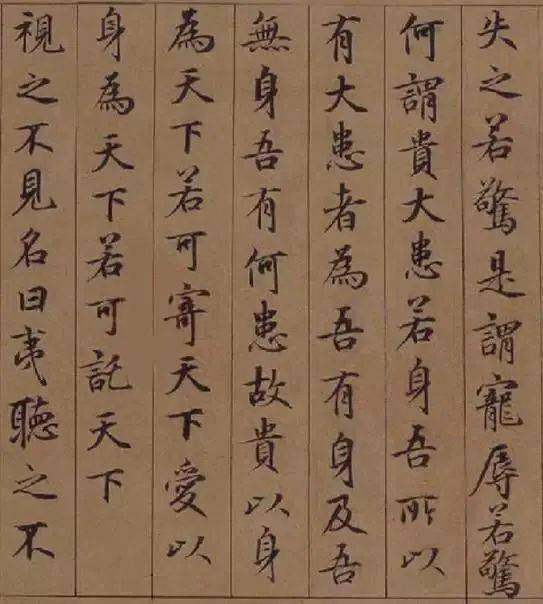 失之若驚是謂寵辱若驚
何謂貴大患若身吾所以
有大患者為吾有身及吾
無身吾有何患故貴以身
為天下若可寄天下愛以
身為天下若可託天下
視之不見名曰夷聽之不